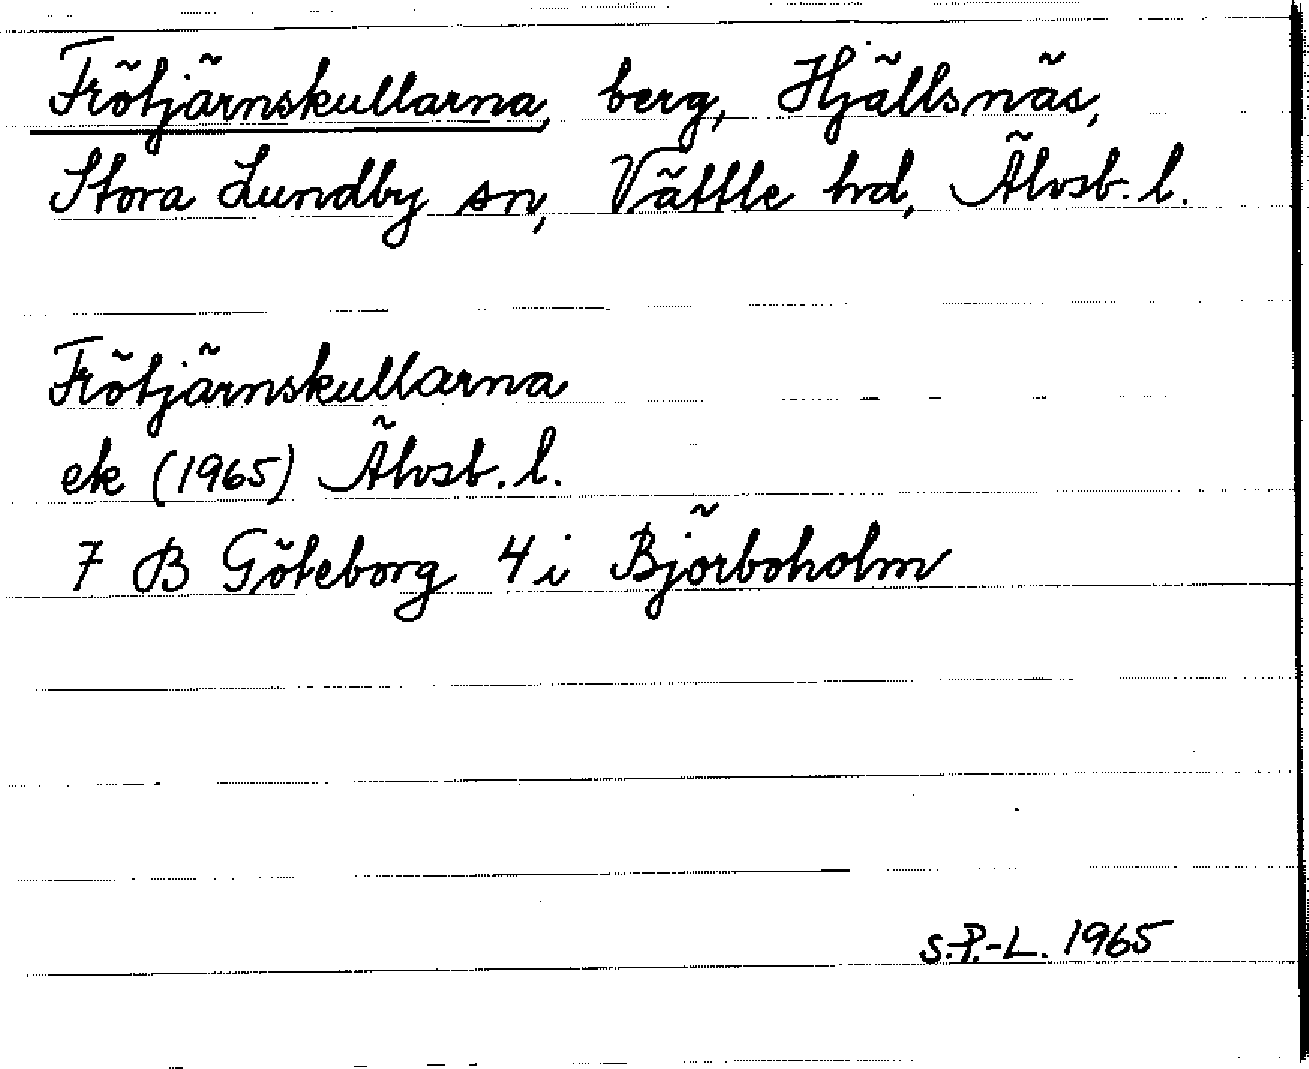 Frötjärnskullarna, berg, Hjällsnäs,
Stora Lundby sn, Vättle hd, Älvsb. l.
Frötjärnskullarna
ek (1965) Älvsb. l.
7 B Göteborg 4 i Björboholm
S.P.-L. 1965